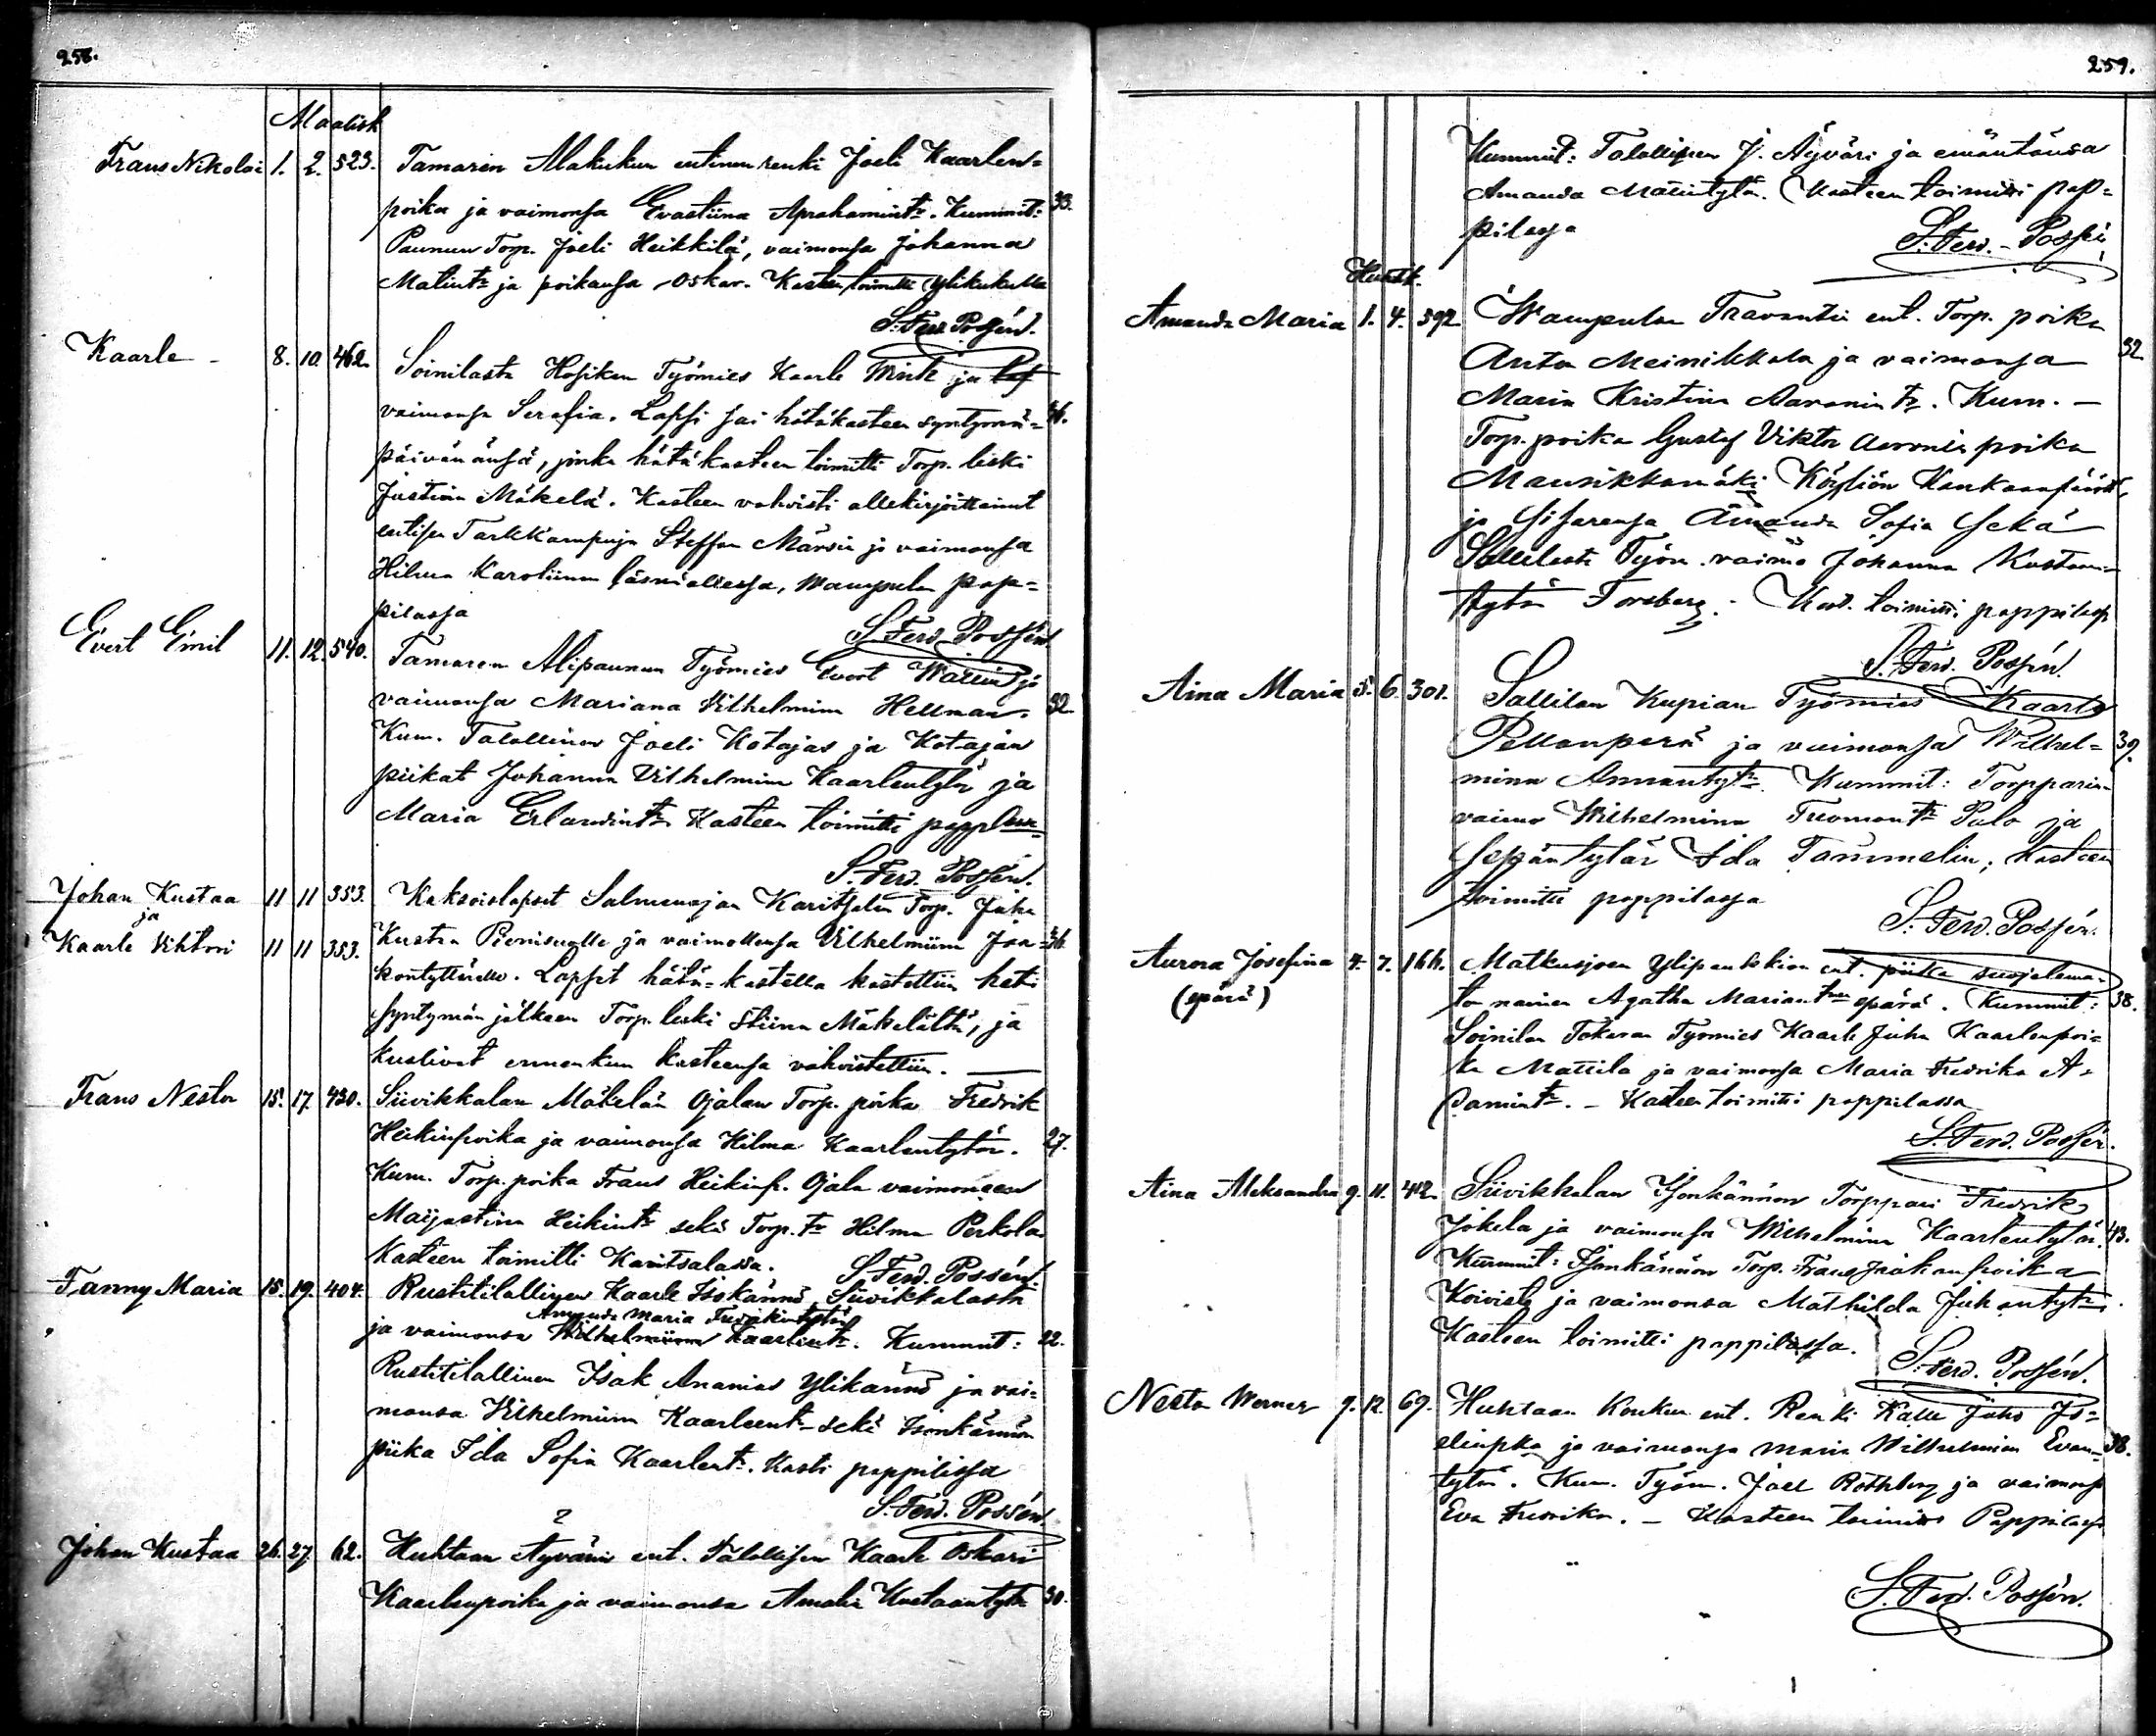 258.
Maalisk
Frans Nikolai 1. 2. 523. Tamaren Alakukun entinen renki Joeli Kaarlen-
poika ja vaimonsa Evastiina Aprahamint. Kummit: 33.
Paunun Torp. Joeli Heikkilä, vaimonsa Johanna
Matint: ja poikansa Oskar. Kasteen toimitti Ylikukulla
S. Ferd. Possén.
Kaarle - 8. 10. 462. Soinilasta Hosiken Työmies Kaarle ja
vaimonsa Serafia. Lapsi sai hätäkasteen syntymä-
päivänänsä, jonka hätäkasteen toimitti Torp. leski
Justiina Mäkelä. Kasteen vahvisti allekirjoittanut
entisen Tarkkampuja Steffan Mänsin ja vaimonsa
Hilma Karoliinan läsnäollessa, Wampulan pap-
pilassa
S. Ferd. Possén.
Evert Emil 11. 12. 540. Tamaren Alipaunun Työmies Evert Wallin ja
vaimonsa Mariana Vilhelmina Hellman. 32.
Kum. Talollinen Joeli Kotajas ja Kotajan
piikat Johanna Vilhelmina Kaarlentytär ja
Maria Erlandint: Kasteen toimitti
S. Ferd. Possén.
Johan Kustaa 11 11 353. Kaksoislapset Salmenojan Karitsalan Torp. Juha
ja
Kaarle Vihtori 11 11 353. Kustaa Pienisuolle ja vaimollensa Vilhelmiina Jaa-
kontyttärelle. Lapset hätä-kastella kastettiin heti
syntymän jälkeen Torp. leski Stiina Mäkelältä, ja
kuolivat ennenkun kasteensa vahvistettiin.
Frans Nestor 15. 17. 430. Siivikkalan Mäkelän Ojalan Torp. poika Fredrik
Heikinpoika ja vaimonsa Hilma Kaarlentytär. 27.
Kum. Torp. poika Frans Heikinp. Ojala vaimoneen
Maijastina Heikint: sekä Torp. tr Hilma Perkola
Kasteen toimitti Karitsalassa. S. Ferd. Possén.
Fanny Maria 15. 19. 404. Rustitilallisen Kaarle Isokännö Siivikkalasta
Amanda Maria Fredrikintytär
ja vaimonsa Wilhelmiina Kaarlent:. Kummit: 22.
Rustitilallinen Isak Ananias Ylikännö ja vai-
monsa Vilhelmiina Kaarleent- sekä Isonkännön
piika Ida Sofia Kaarlent:. Kasti pappilassa
S. Ferd. Possén.
?
Johan Kustaa 26. 27. 62. Huhtaan Äyvärin ent. Talollisen Kaarle Oskari
Kaarlenpoika ja vaimonsa Amalia Kustaantytär 30.
259.
Kummit: Talollisen J. Äyväri ja emäntänsä
Amanda Matintytär. Kasteen toimitti pap-
pilassa
S. Ferd. Possén
Huhtik.
Amanda Maria 1. 4. 592 Wampulan Travantin ent. Torp. poika
Anton Meinikkala ja vaimonsa 32
Maria Kristina Aaronint:. Kum. -
Torp. poika Gustaf Viktor Aaronin poika
Mansikkamäki Köyliön Kankaanpäästä,
ja sisarensa Amanda Sofia sekä
Sallilasta Työm. vaimo Johanna Kustaan-
tytär Forsberg. Kast. toimitti pappilassa
S. Ferd. Possén.
Aina Maria 5. 6. 301. Sallilan Kupian Työmies Kaarle
Pellonperä ja vaimonsa Wilhel- 39.
mina Annantyt:. Kummit: Torpparin
vaimo Wilhelmina Tuomont: Palo ja
Sepän tytär Ida Tammelin; Kasteen
toimitti pappilassa
S. Ferd. Possén.
Aurora Josefina 4. 7. 166. Matkusjoen Ylipentikän ent. piika suojeleman
(äpärä) ton nainen Agatha Mariant: äpärä. Kummit: 38.
Soinilan Tokeran Työmies Kaarle Juha Kaarlenpoi-
ka Mattila ja vaimonsa Maria Fredrika A-
damint:. - Kasteen toimitti pappilassa
S. Ferd. Possén.
Aina Aleksandra 9. 11. 412. Siivikkalan Isonkännön Torppari Fredrik
Jokela ja vaimonsa Wilhelmina Kaarlentytär. 43.
Kummit: Isonkännön Torp. Frans Juhanpoika
Koivisto ja vaimonsa Mathilda Juhantyt:.
Kasteen toimitti pappilassa.
S. Ferd. Possén.
Nestor Werner 9. 12. 69. Huhtaan Konkun ent. Renki Kalle Juho Jo-
elinpka ja vaimonsa Maria Wilhelmina Evan- 38.
tytär. Kum. Työm. Joel Rothberg ja vaimonsa
Eva Fredrika. - Kasteen toimitti Pappilassa
S. Ferd. Possén.